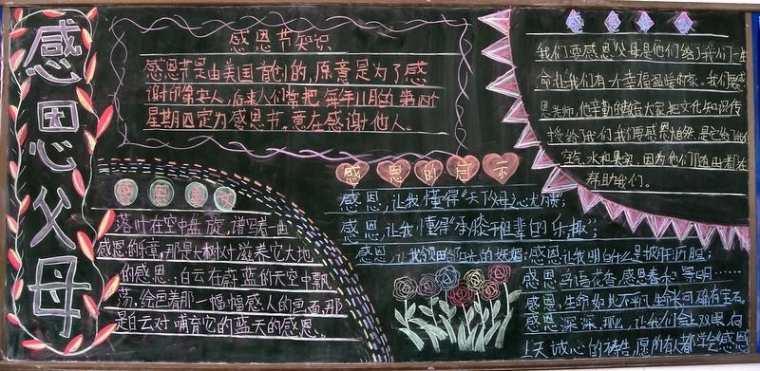 感恩父母
感恩节知识
感恩节是由美国首创的,原意是为了感
谢印第安人,后来人们常把每年11月的第四个
星期四定为感恩节,意在感谢他人。
感恩
落叶在空中盘旋,谱写着一曲
感恩的乐章,那是大树对滋养它大地
的感恩;白云在蔚蓝的天空中飘
荡,绘画着那一幅幅感人的画面,那
是白云对哺育它的蓝天的感恩。
感恩的启示
感恩,让我懂得“天下父母心”
感恩,让我懂得“承膝于祖辈的乐趣”;
感恩,让我
感恩,让我明白什么是披肝沥胆;
感恩,鸟语花香,感恩春和景明……
感恩,生命如此不凡,
感恩深深,那么,让我们合上双眼,向
上天诚心的祷告,愿所有人都学会感恩
我们要感恩父母,是他们给了我们一生
命,让我们有个幸福温暖的家。我们要感
恩老师,他辛勤的给大家把文化知识传
授给了我们,我们要感恩自然,是它给了我们
空气、水和果实,因为他们
存,帮助我们。